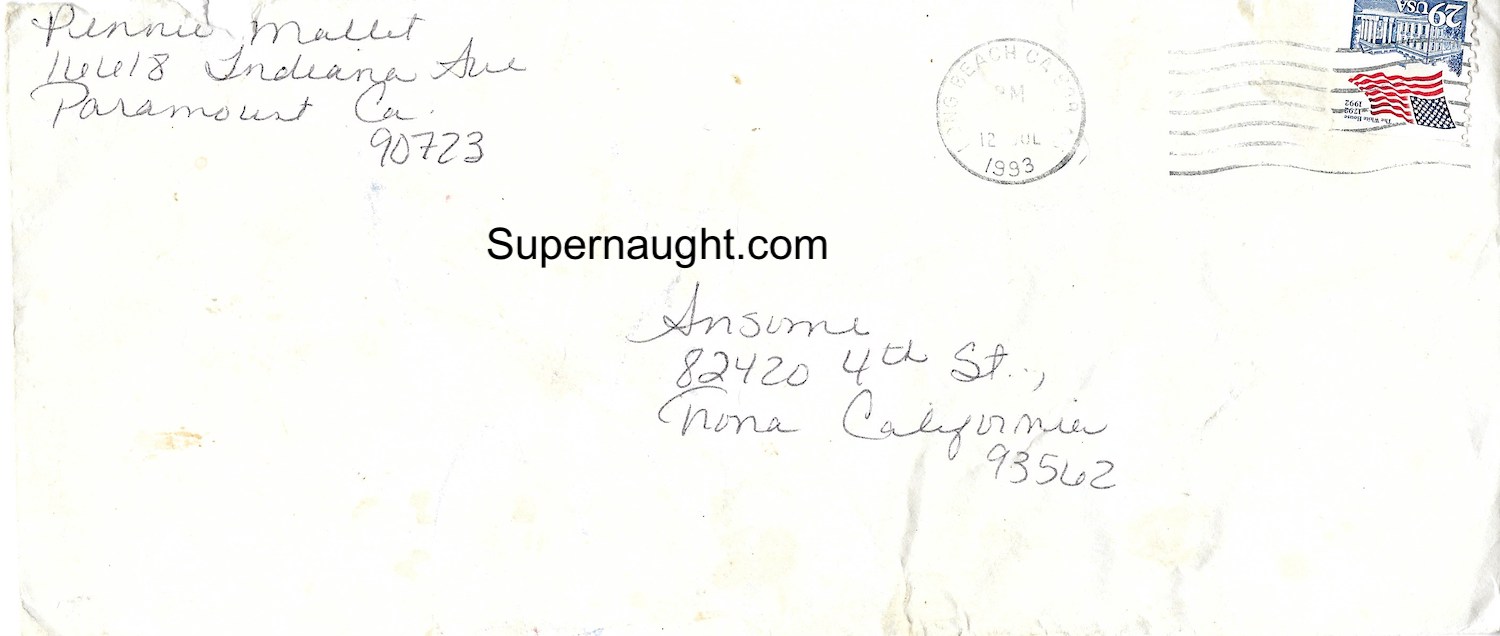 Pennie Mallet
16618 Indiana Ave
Paramount Ca.
90723
LONG BEACH CA
PM
12 JUL
1993
29 USA
The White House
1792
1992
Supernaught.com
Ansome
82420 4th St.,
Trona California
93562